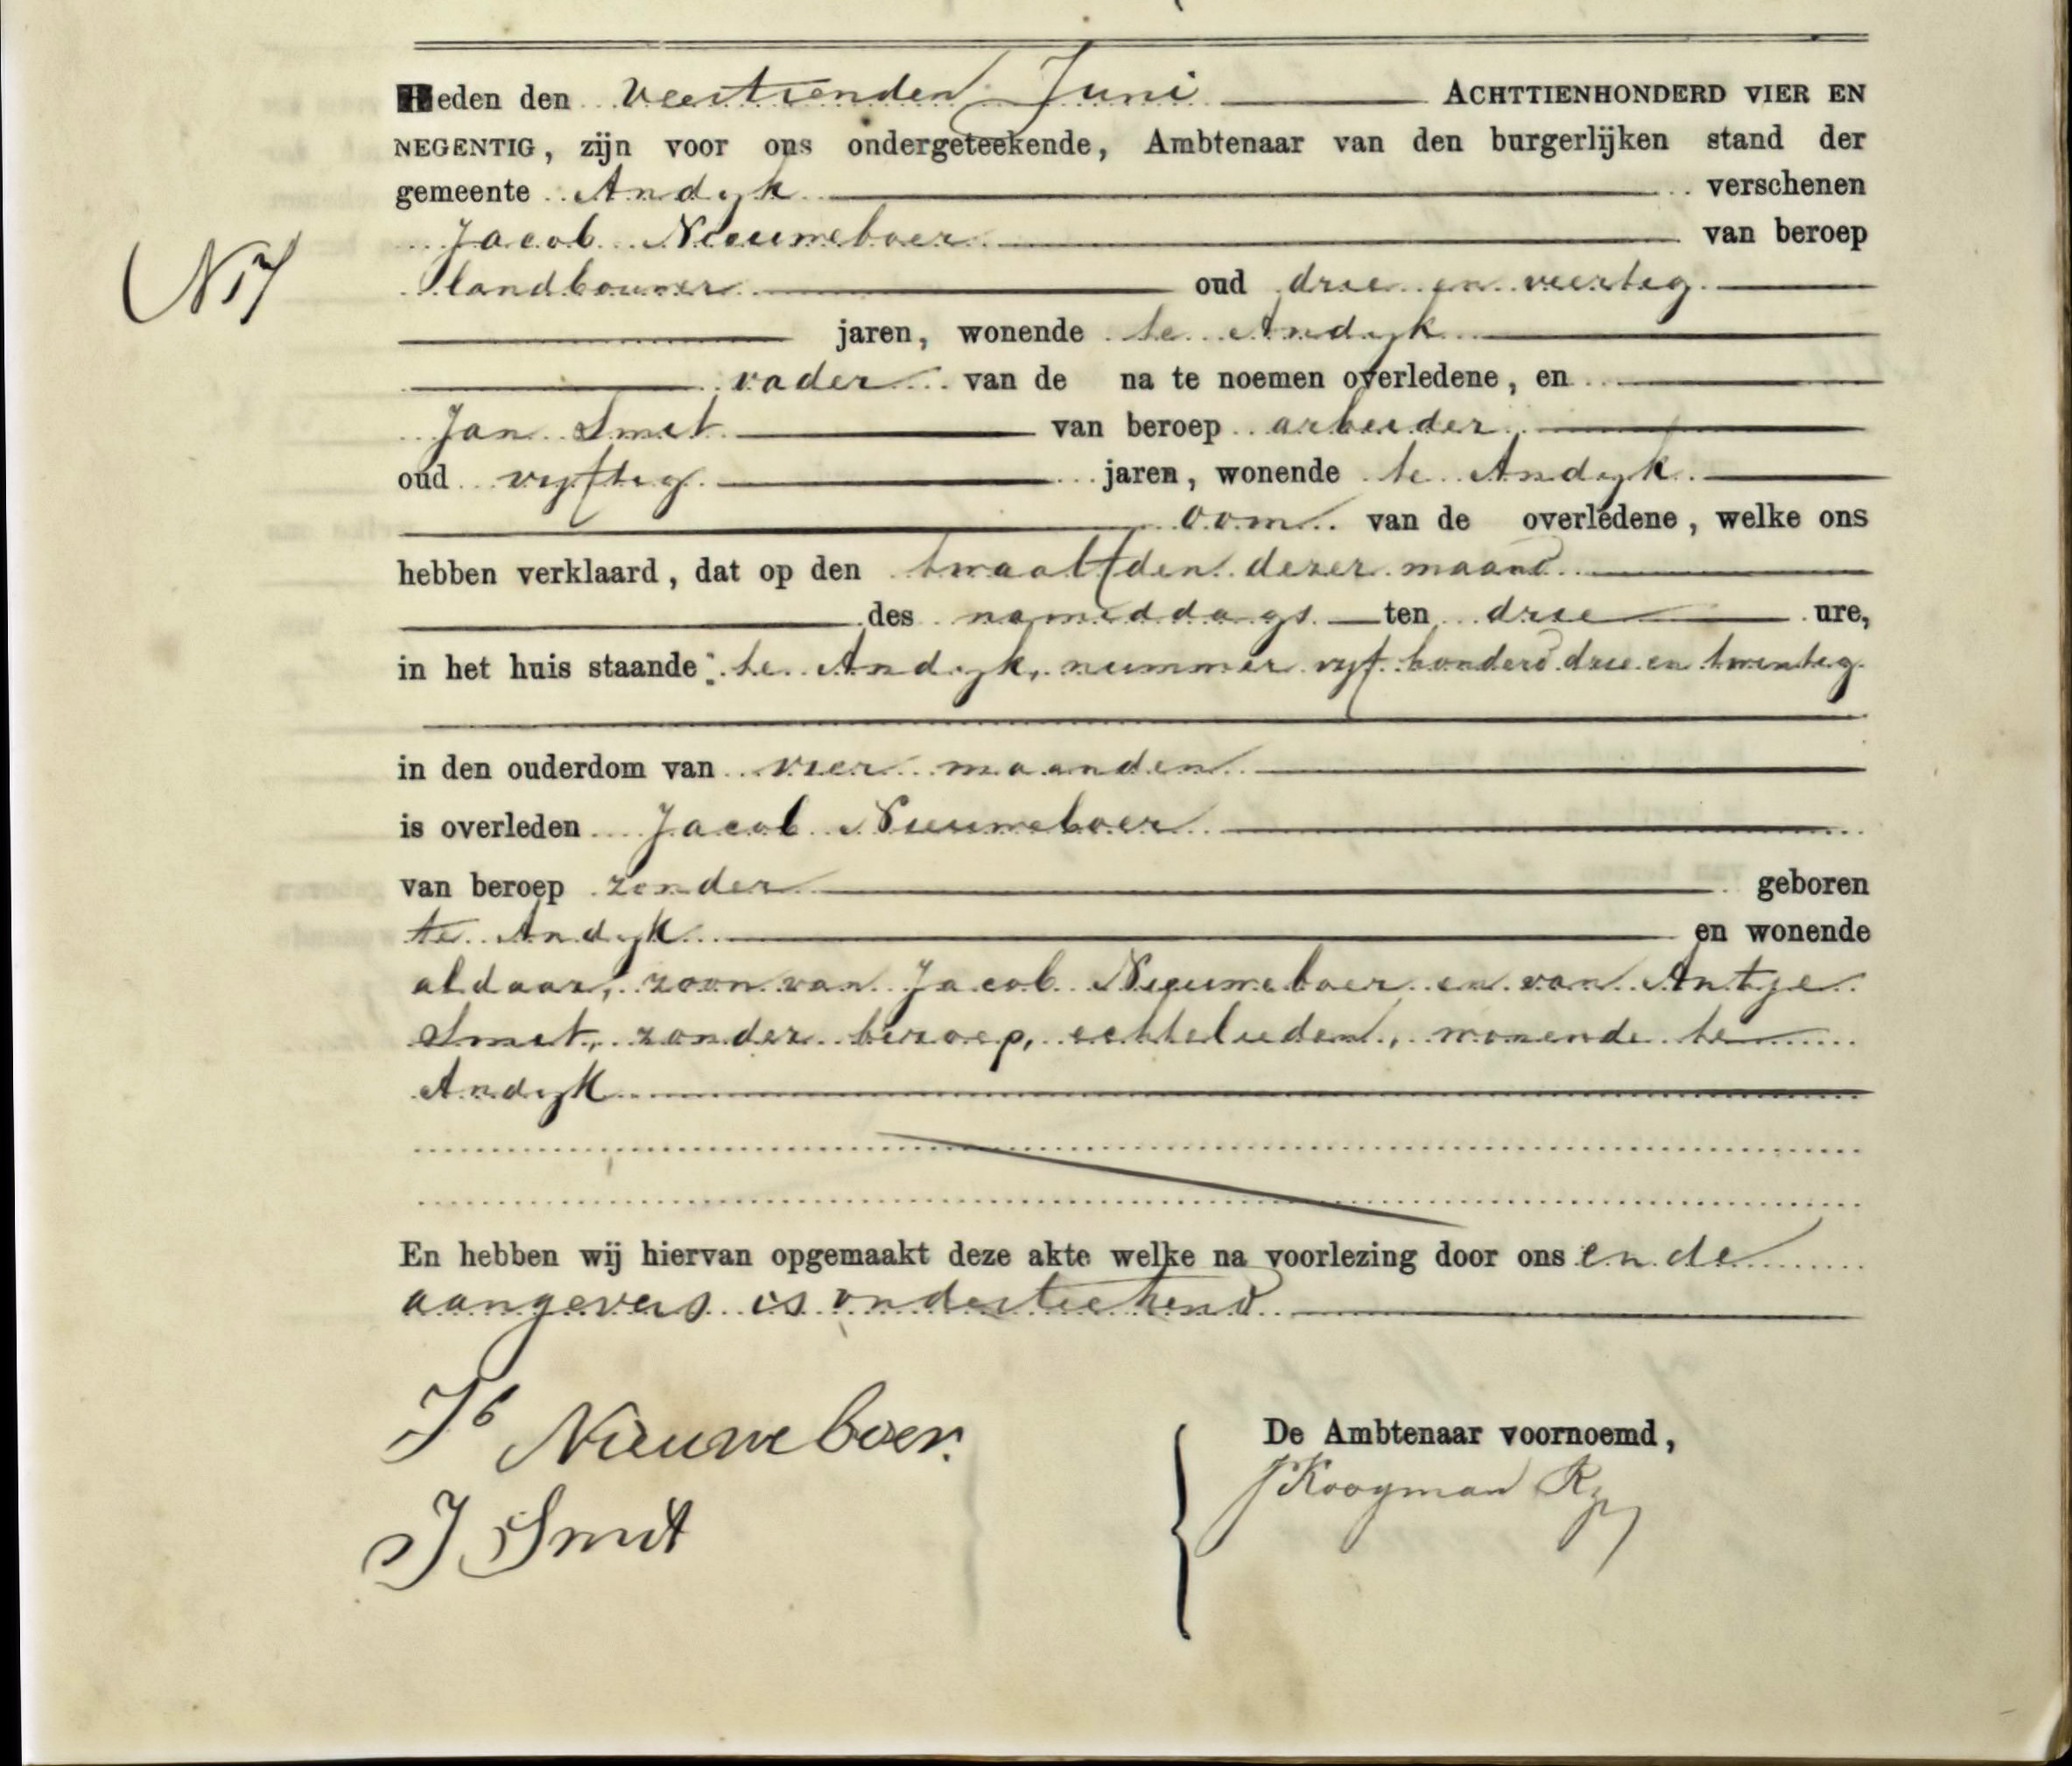 Heden den veertienden Juni ACHTTIENHONDERD VIER EN
NEGENTIG, zijn voor ons ondergeteekende, Ambtenaar van den burgerlijken stand der
gemeente Andijk verschenen
Jacob Nieuweboer van beroep
landbouwer oud drie en veertig
jaren, wonende te Andijk
vader van de na te noemen overledene, en
Jan Smit van beroep arbeider
oud vijftig jaren, wonende te Andijk
oom van de overledene, welke ons
hebben verklaard, dat op den twaalfden dezer maand
des namiddags ten drie ure,
in het huis staande: te Andijk, nummer vijf honderd drie en twintig
in den ouderdom van vier maanden
is overleden Jacob Nieuweboer
van beroep zonder geboren
te Andijk en wonende
aldaar, zoon van Jacob Nieuweboer en van Antje
Smit, zonder beroep, echtelieden, wonende te
Andijk
En hebben wij hiervan opgemaakt deze akte welke na voorlezing door ons en de
aangevers is onderteekend
Jb Nieuweboer.
J Smit
De Ambtenaar voornoemd,
J Kooyman Rz